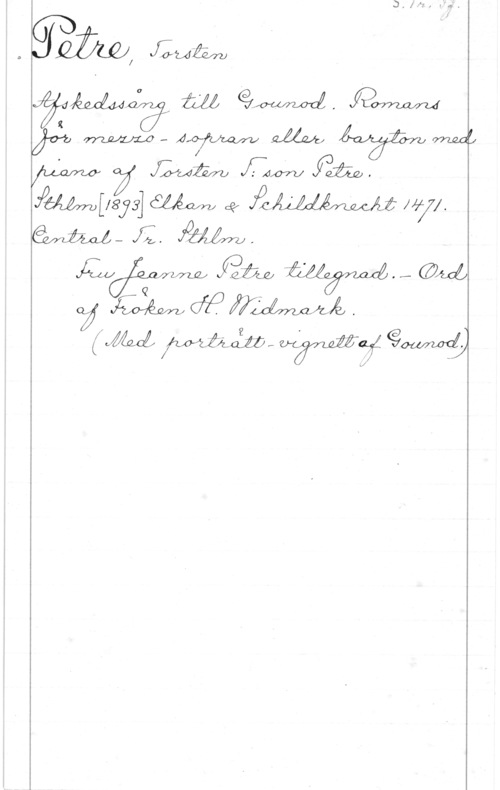 Petre, Torsten
Afskedssång till Gounod. Romans
för mezzo-sopran eller baryton med
piano af Torsten T:son Petre.
Sthlm [1893] Elkan & Schildknecht 1471.
Central-Tr. Sthlm.
Fru Jeanne Petre tillegnad. - Ord
af Fröken H. Widmark.
(Med porträtt-vignett af Gounod.)